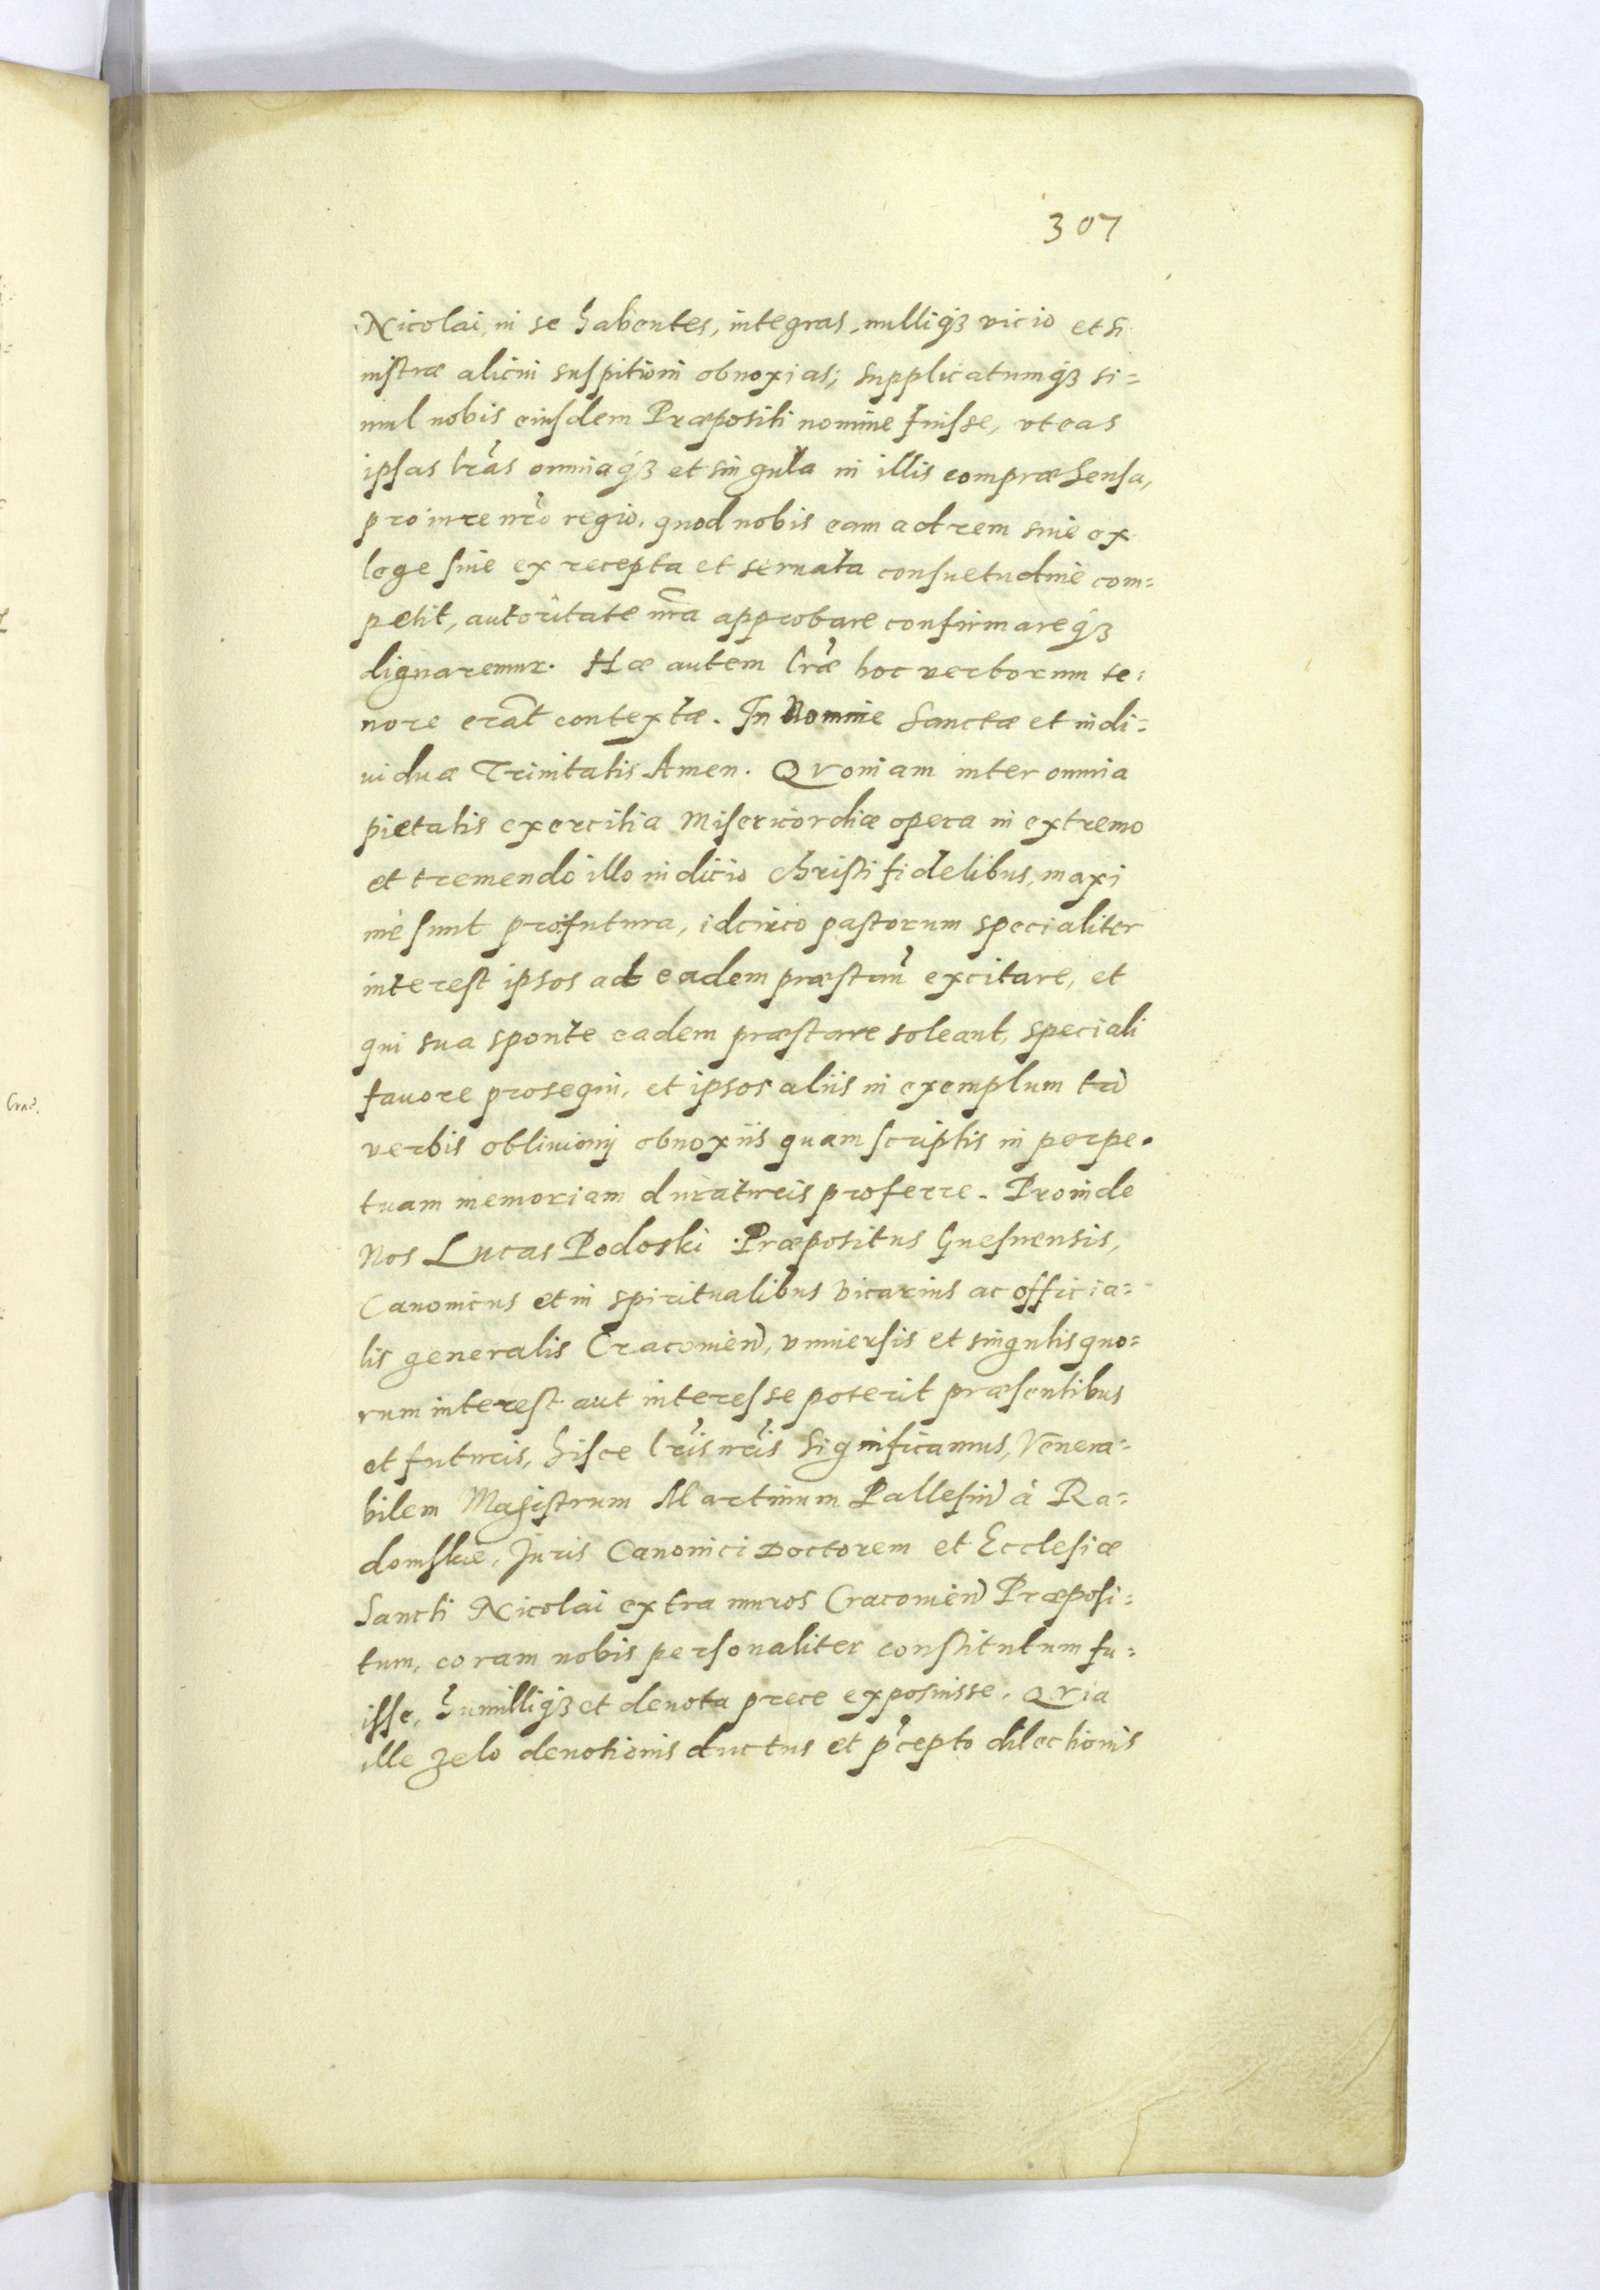 307
Nicolai, in se habentes, integras, nulliq́ꝫ vicio et si
nistræ alicui suspitioni obnoxias; supplicatumq́ꝫ si=
mul nobis eiusdem Præpositi nomine fuisse, vt eas
ipsas lrãs omniaq́ꝫ et singula in illis compræhensa,
pro iure nrõ regio, quod nobis eam ad rem siue ex
lege siue ex recepta et seruata consuetudine com=
petit, autoritate nrã approbare confirmareq́ꝫ
dignaremur. Hæ autem lræ̃ hoc verborum te=
nore erãt contextæ. In Nomine Sanctæ et indi=
uiduæ Trinitatis Amen. Qvoniam inter omnia
pietatis exercitia Misericordiæ opera in extremo
et tremendo illo iudicio Christi fidelibus, maxi
mè sunt profutura, idcirco pastorum specialiter
interest ipsos ad eadem præstan̄ excitare, et
qui sua sponte eadem præstare soleant, speciali
fauore prosequi, et ipsos aliis in exemplum tã
verbis obliuionj obnoxiis quam scriptis in perpe=
tuam memoriam duraturis proferre. Proinde
Nos Lucas Podoski Præpositus Gnesnensis,
Canonicus et in spiritualibus Vicarius ac officia=
lis generalis Cracouien̄, vniuersis et singulis quo=
rum interest aut interesse poterit præsentibus
et futuris, hisce lrĩs nrĩs significamus, Venera=
bilem Magistrum Martinum Pallesin̄ à Ra=
domskie, Juris Canonici Doctorem et Ecclesiæ
Sancti Nicolai extra muros Cracouien̄ Præposi=
tum, coram nobis personaliter constitutum fu=
isse, humiliq́ꝫ et deuota prece exposuisse. Qvia
ille zelo deuotionis ductus et p̃cepto dilectionis